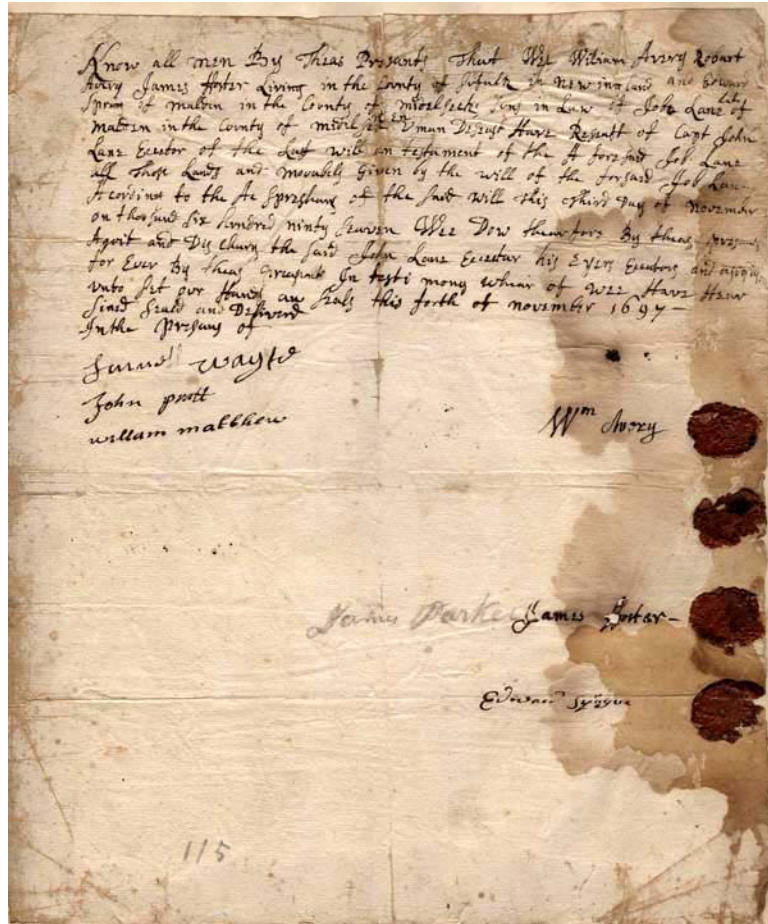 Know all men By Theas Presants That Wee William Avery Robart
Avery James Foster Living in the County of Sufulk in New ingland and Edward
Spran of maldin in the County of midelseck sons in Law of Job Lane late of
maldin in the County of Have Reseatt of Capt John
Lane Exector of the Last will an testament of the A forsaid Job Lane
all Those Lands and movabels Given by the will of the forsaid Job Lane
Acording to the of the said will this Third Day of November
on thousand six hundred ninty seaven Wee Dow thearfore By theas
Aquit and Discharg the said John Lane Exectar his Eyers Exectors and
for Ever By theas In testi mony whear of wee Have Hear
unto set our Hands an seals this forth of november 1697
Sined Seald and
In the Presans of
Wayte
John pratt
william matthew
Wm Avery
James Parker
James Foster
Edward
115